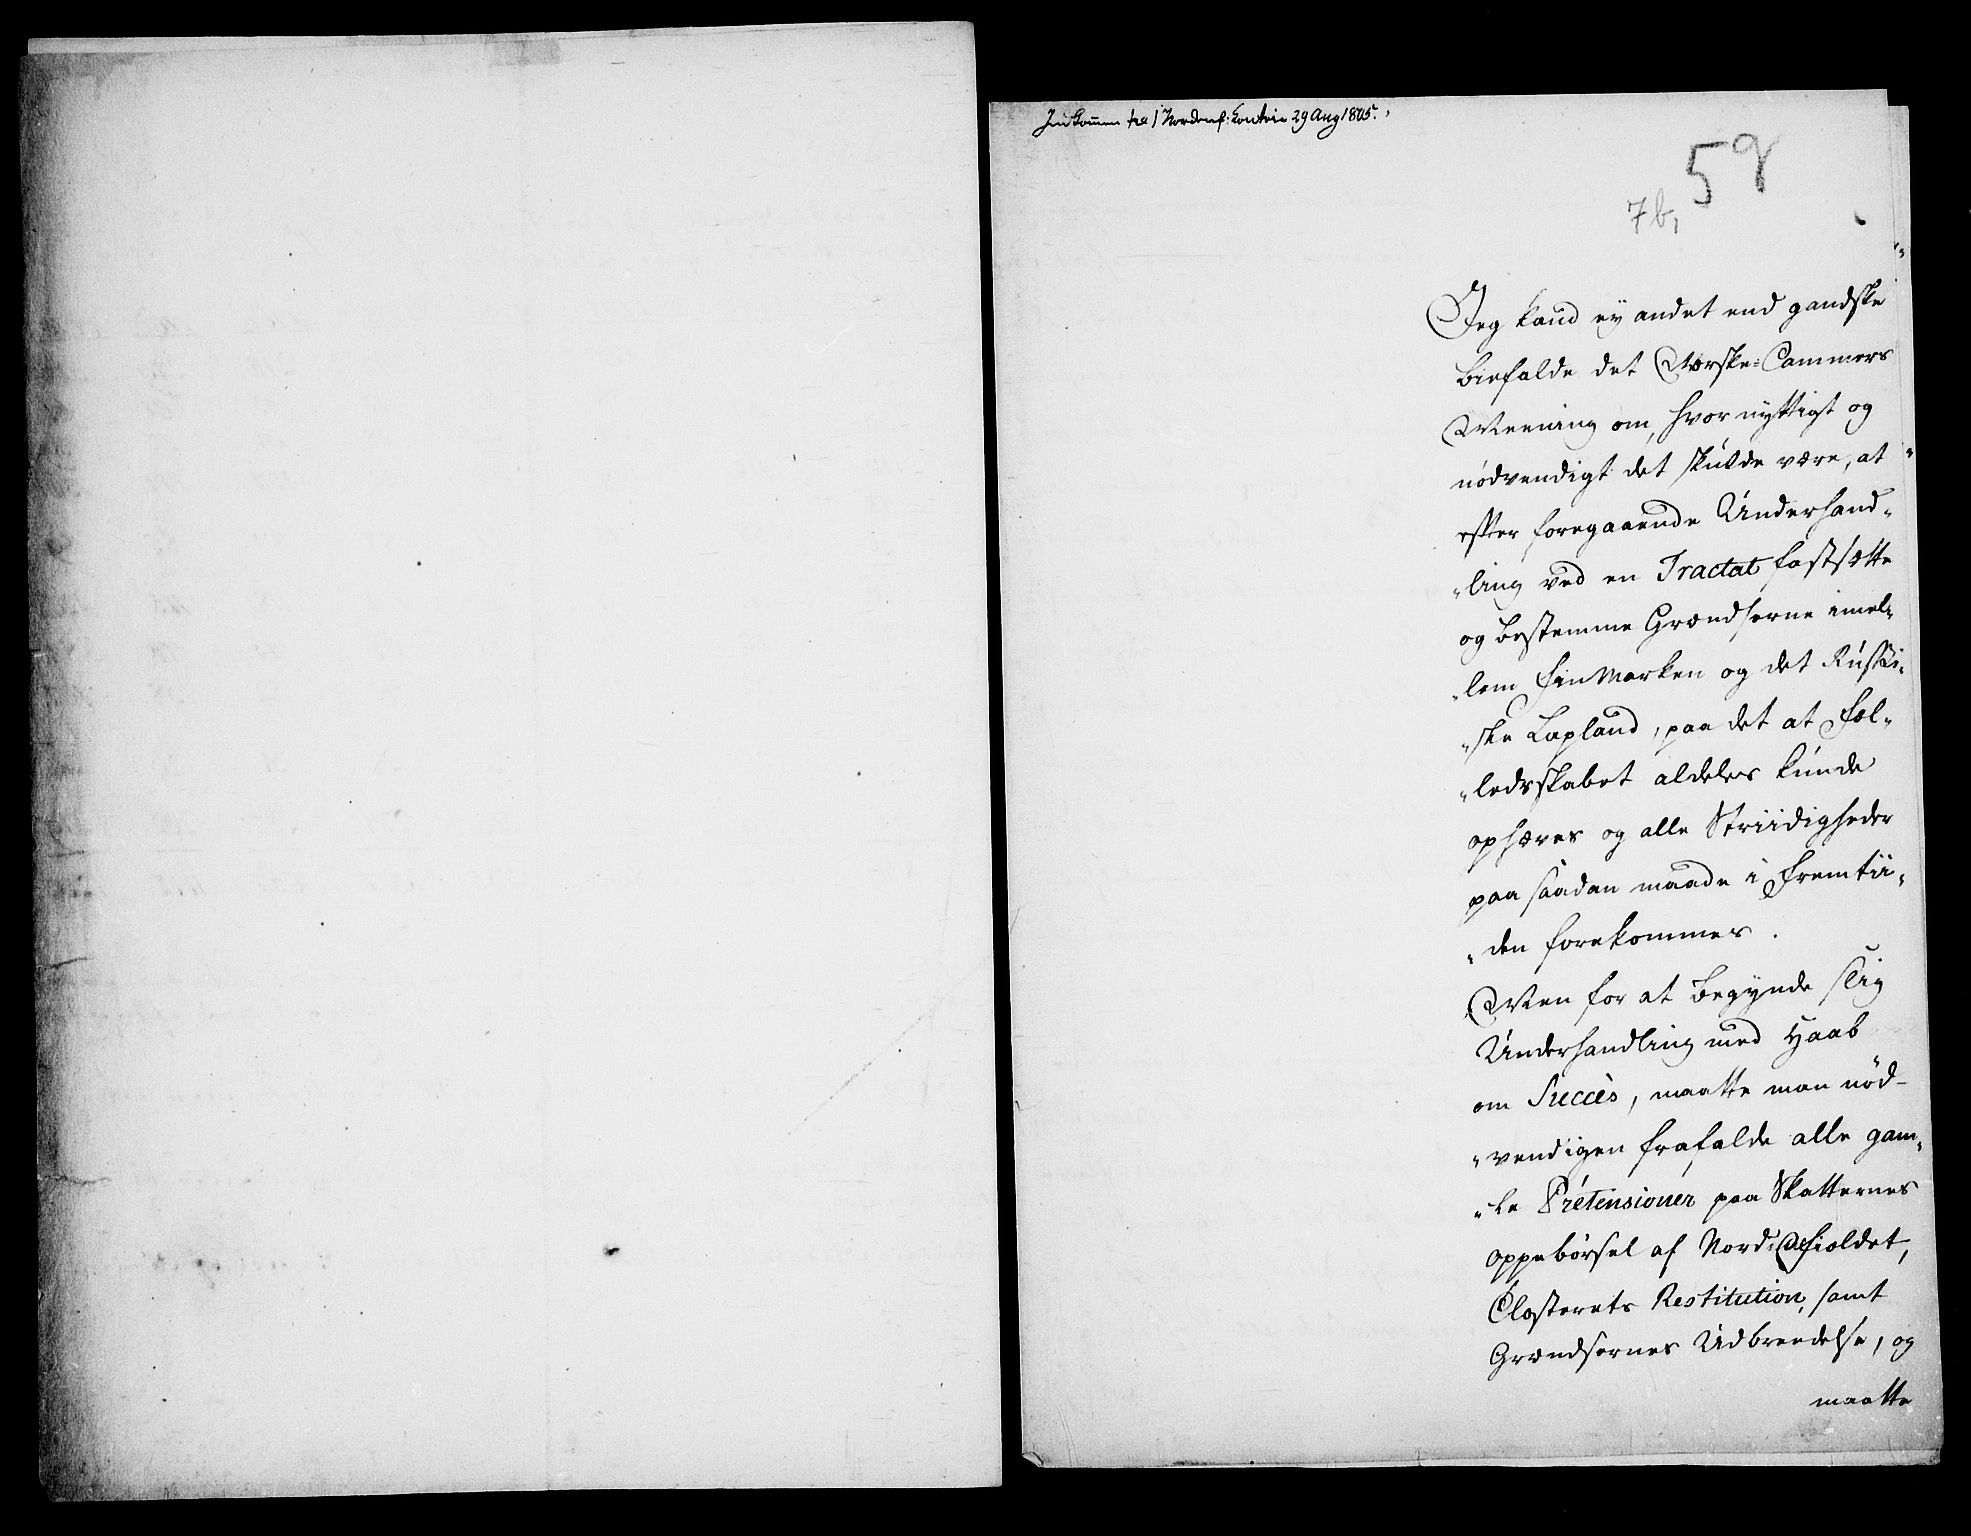 Indkommen til 1 Nordenf: Contoir 29 Aug 1805.
59
7b,
Jeg kand ey andet end gandske
biefalde det Norske-Cammers
Meening om, hvor nyttigt og
nödvendigt det skulde være, at
efter foregaaende Underhand„
„ling ved en Tractat fastsætte
og bestemme Grændserne imel„
„lem FinMarken og det Russi„
„ske Lapland, paa det at Fæl„
„ledsskabet aldeles kunde
ophæves og alle Striidigheder
paa saadan maade i Fremtii„
„den forekommes.
Men for at begynde slig
Underhandling med Haab
om Succès, maatte man nöd-
„vendigen frafalde alle gam„
„le Prétensioner paa Skatternes
oppebörsel af Nord-Fieldet,
Closterets Restitution, samt
Grændsernes Udbreedelse, og
maatte